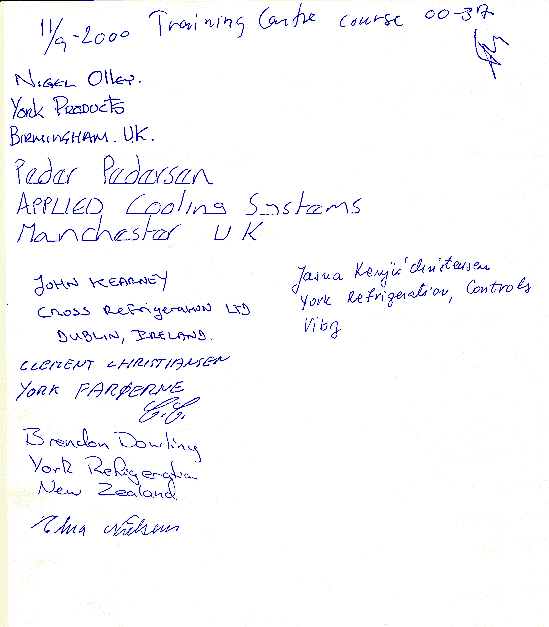 11/9-2000 Training Centre course 00-37
NIGEL Olley.
York PRODUCTS
BIRMINGHAM. UK.
Peder Pedersen
APPLIED Cooling Systems
Manchester UK
JOHN KEARNEY
CROSS REFRIGERATION LTD
DUBLIN, IRELAND.
Jasna Christensen
York Refrigeration, Controls
Viby
CLEMENT CHRISTIANSEN
YORK FARØERNE
C.C.
Brendon Dowling
York Refrigeration
New Zealand
Nielsen